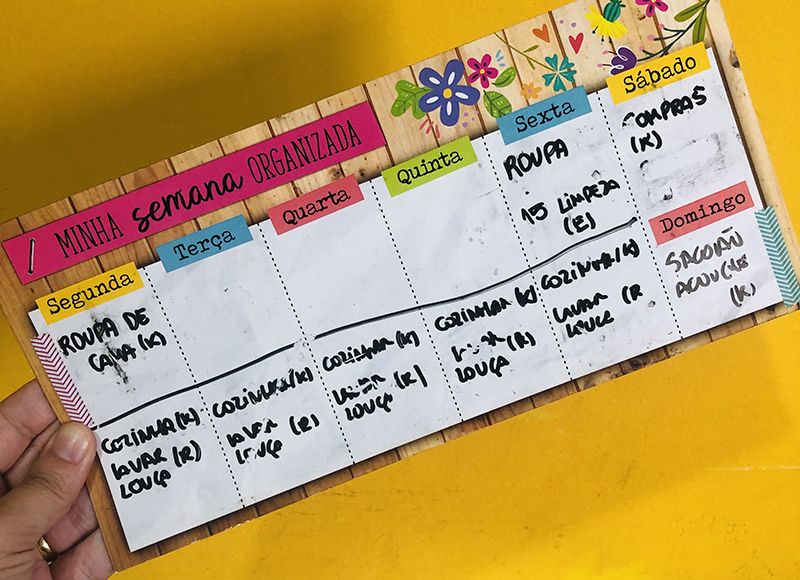 MINHA semana ORGANIZADA
Segunda
ROUPA DE
CAMA (K)
COZINHA (K)
LAVAR (R)
LOUÇA
Terça
COZINHA (K)
LAVAR (R)
LOUÇA
Quarta
COZINHAR (K)
LAVAR (R)
LOUÇA
Quinta
COZINHAR (K)
LAVAR (R)
LOUÇA
Sexta
ROUPA
15 LIMPEZA
(E)
COZINHA (K)
LAVAR (R
LOUÇA
Sábado
COMPRAS
(K)
Domingo
SACOLÃO
AÇOUGUE
(K)